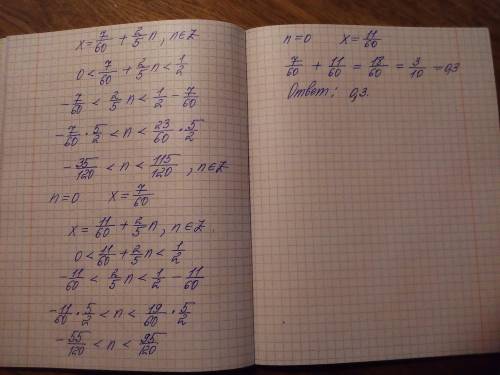 x = 7/60 + 2/5 n, n ∈ Z
0 < 7/60 + 2/5 n < 1/2
-7/60 < 2/5 n < 1/2 - 7/60
-7/60 · 5/2 < n < 23/60 · 5/2
-35/120 < n < 115/120, n ∈ Z
n=0 x = 7/60
x = 11/60 + 2/5 n, n ∈ Z.
0 < 11/60 + 2/5 n < 1/2
-11/60 < 2/5 n < 1/2 - 11/60
-11/60 · 5/2 < n < 19/60 · 5/2
-55/120 < n < 95/120
n=0 x = 11/60
7/60 + 11/60 = 18/60 = 3/10 = 0,3
Ответ: 0,3.